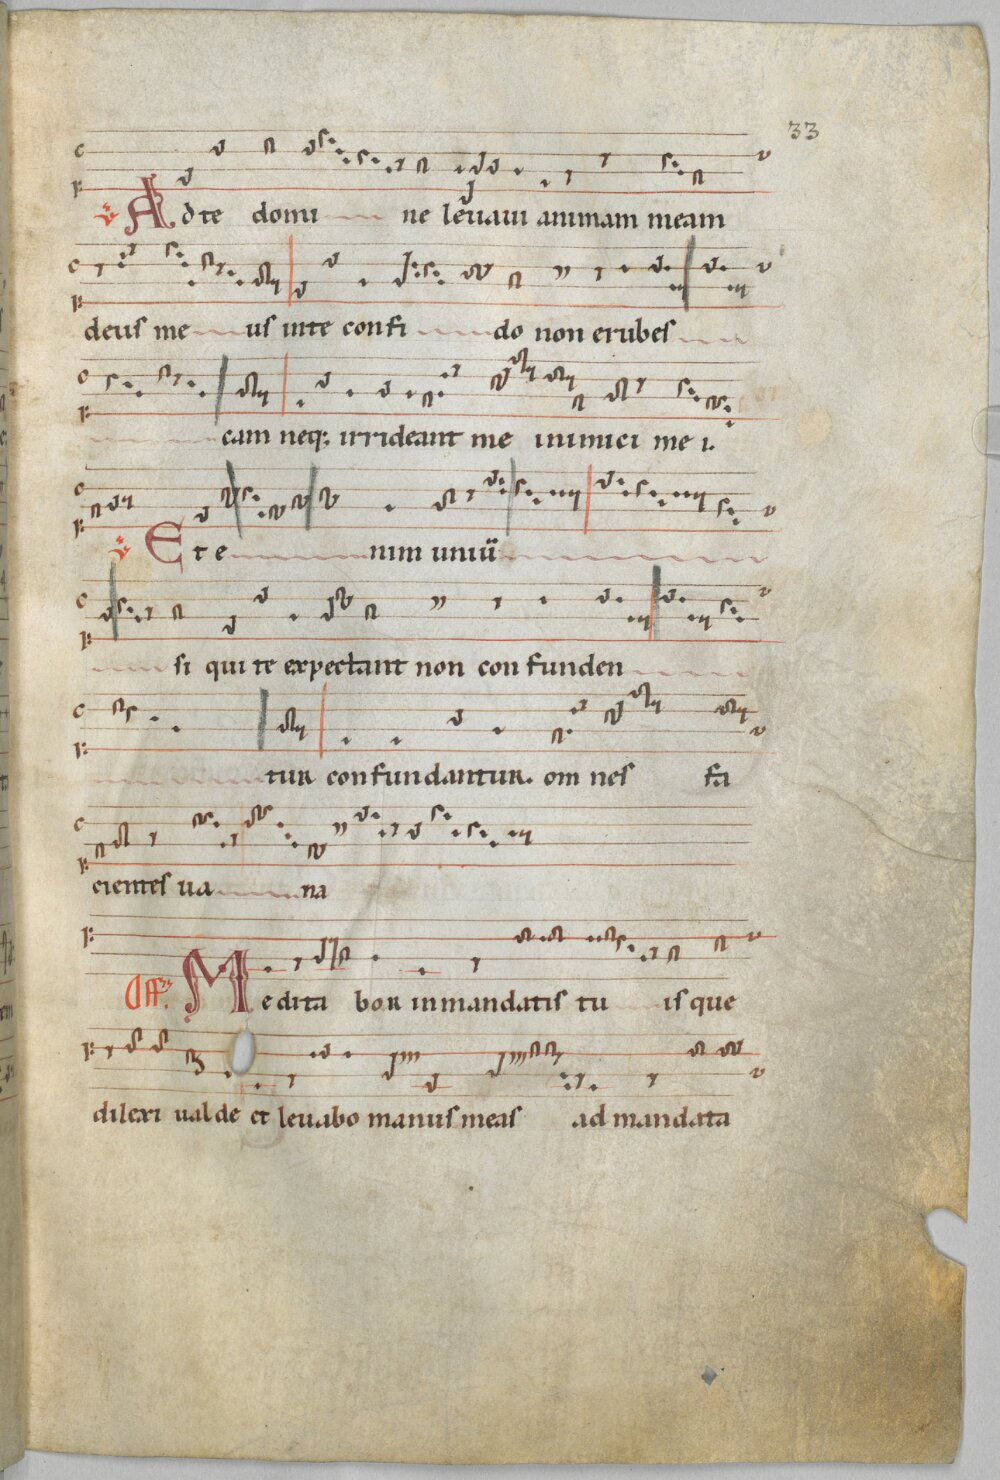 33
℣ Ad te domi ne leuaui animam meam
deus me us in te confi do non erubes
cam neq; irrideant me inimici me i.
℣ Et e nim uniũ
si qui te expectant non confunden
tur confundantur. om nes fa
cientes ua na
Off. Medita bor in mandatis tu is que
dilexi ualde et leuabo manus meas ad mandata